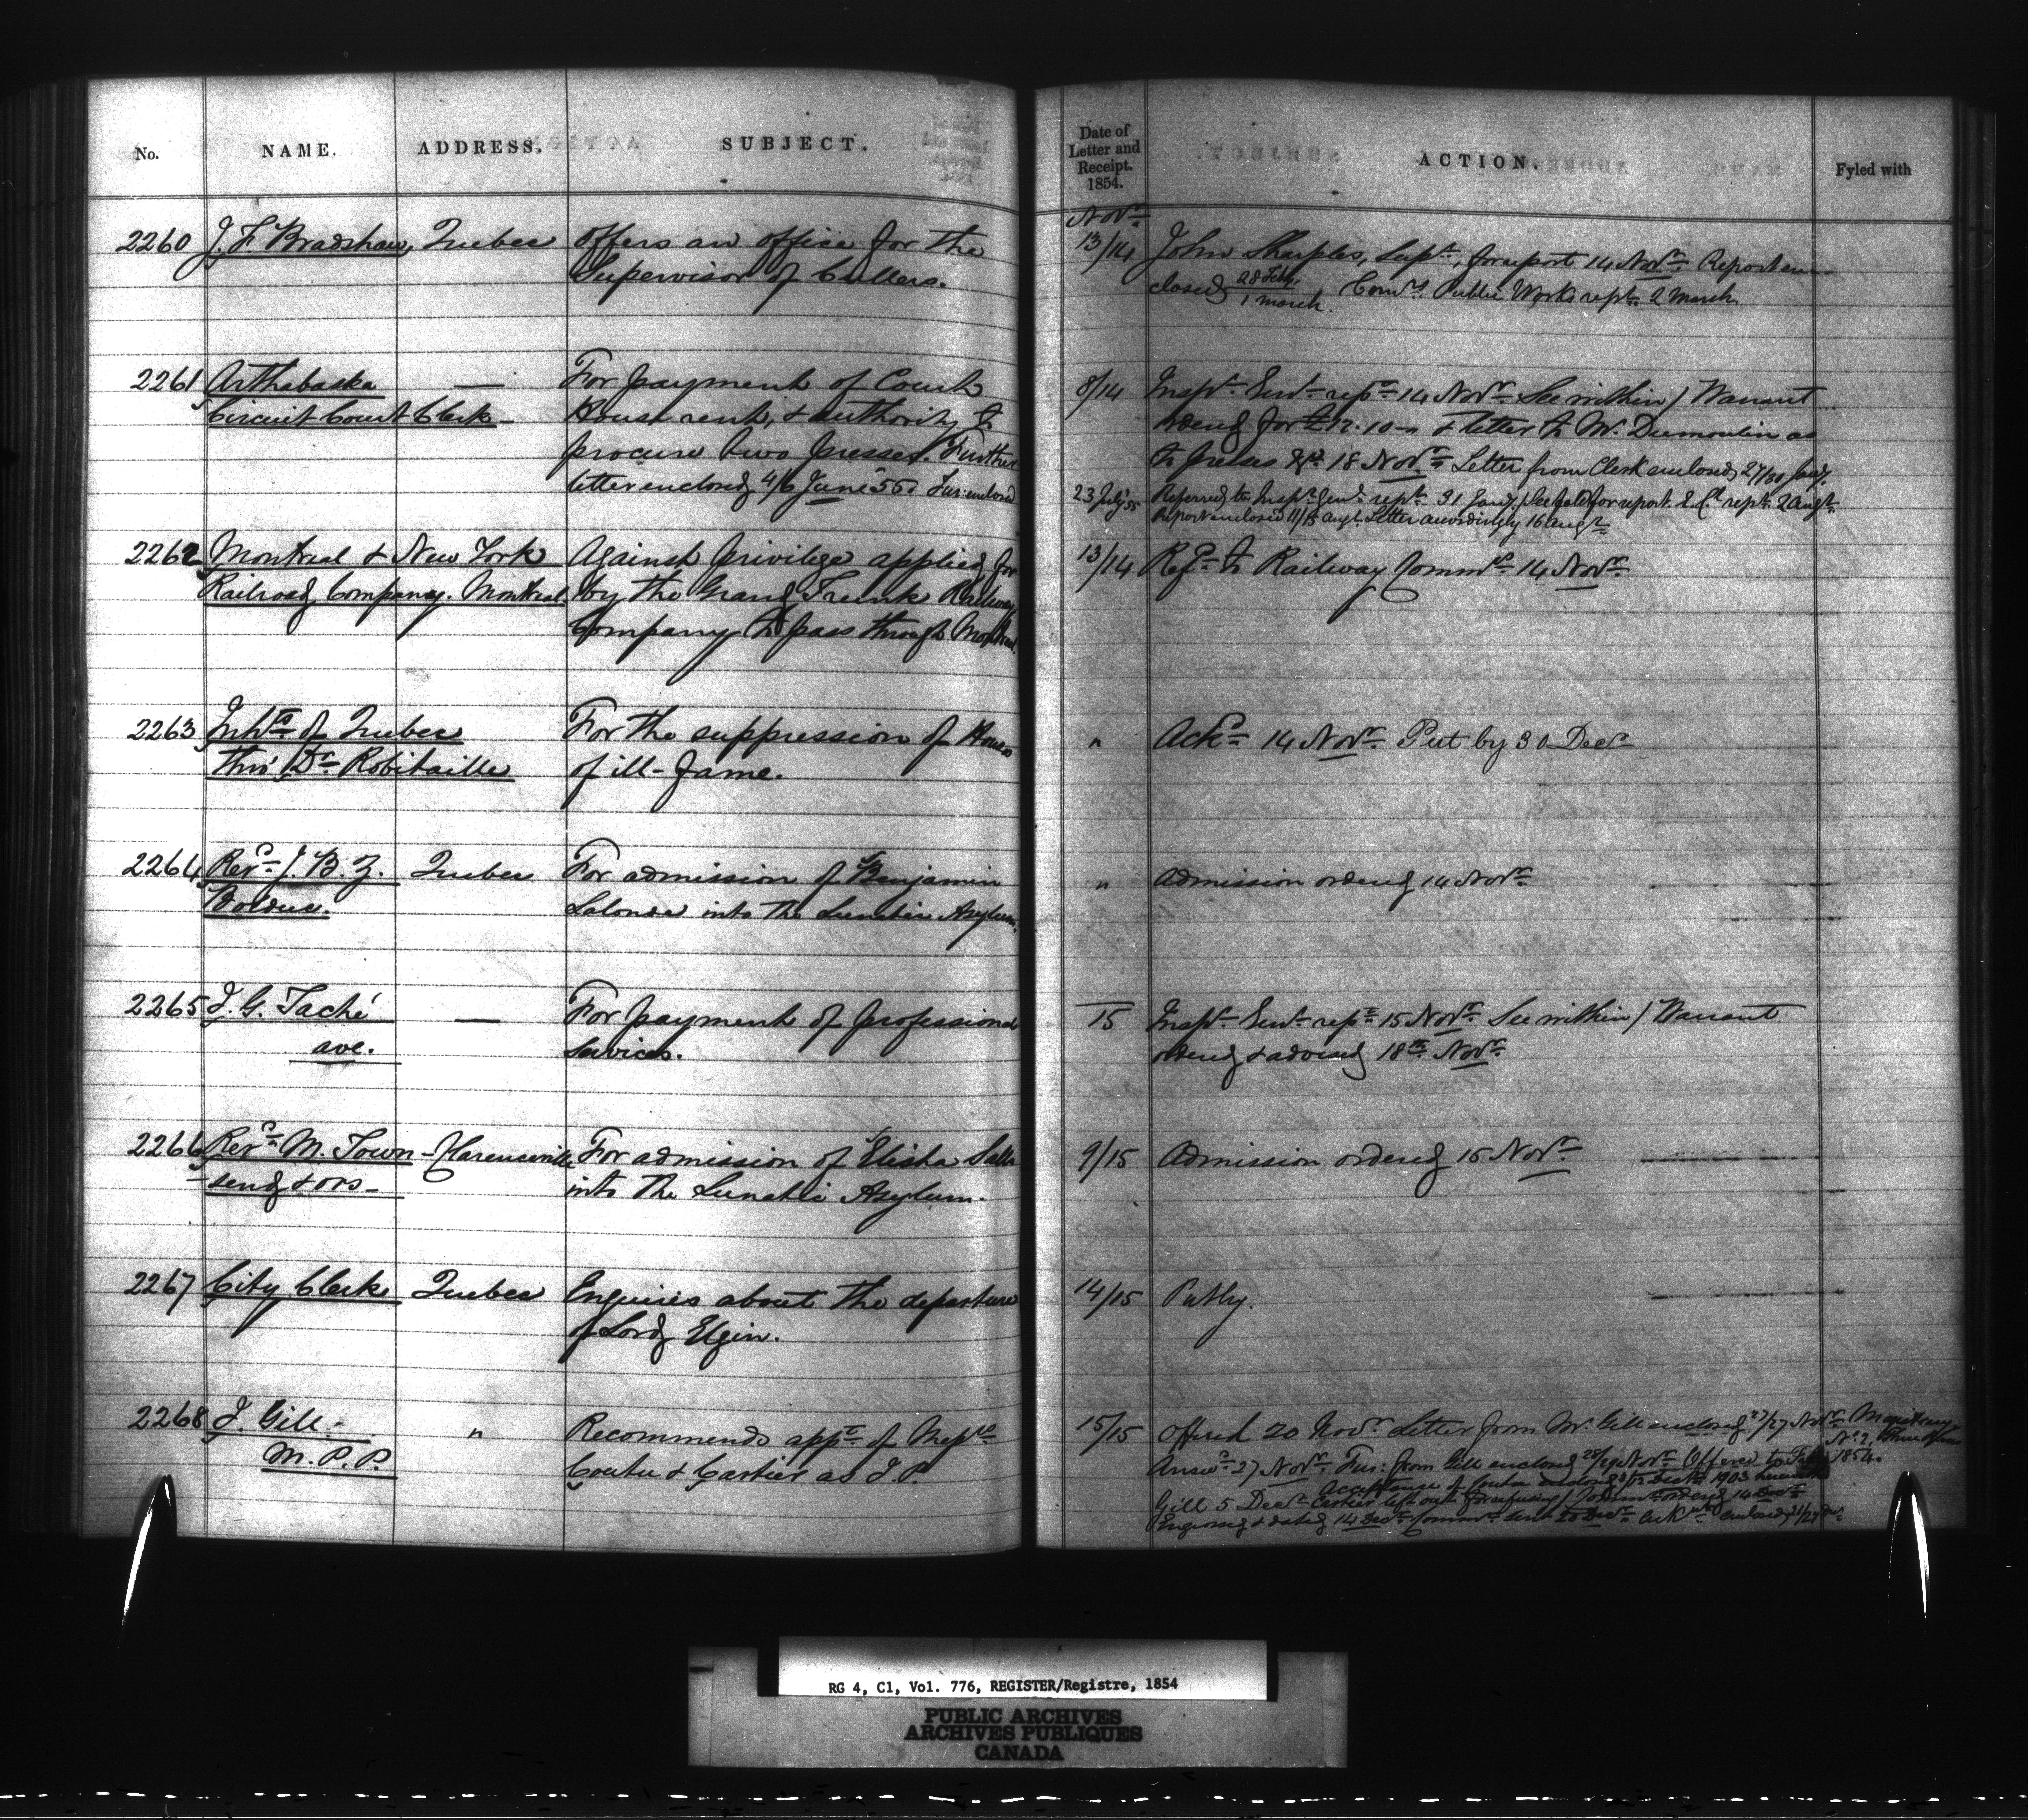 No. NAME. ADDRESS. SUBJECT.
Date of
Letter and
Receipt.
1854.
ACTION.
Fyled with
Novr
2260 J. F. Bradshaw, Quebec Offers an office for the
Supervisor of Cullers.
13/14 John Sharples, Supt, for report 14 Novr. Report en-
closed 28 Feby/1 March. Comrs Public Works rept 2 March
2261 Arthabaska — For payment of Court
Circuit Court Clerk House rent, & authority to
procure two presses. Further
letter enclosed 4/6 June 55. Fur: enclosed
8/14 Inspr Genl rept 14 Novr See within / Warrant
ordered for £12.10 & letter to Mr Dumoulin as
to presses 18 Novr. Letter from Clerk enclosed 27/30 Jany.
23 July 55 Referred to Inspr Genl rept 31 Jany. for report. E. Cl rept 2 Augt.
Report enclosed 11/15 Augt. Letter accordingly 16 Augt
2262 Montreal & New York Against privilege applied for
Railroad Company. Montreal. by the Grand Trunk Railway
Company to pass through Montreal.
13/14 Refd to Railway Commrs 14 Novr
2263 Inhts of Quebec For the suppression of Houses
thro' Dr Robitaille of ill-fame.
" Ackd 14 Novr. Put by 30 Decr
2264 Revd J. B. Z. Quebec For admission of Benjamin
Bolduc. Lalonde into the Lunatic Asylum.
" Admission ordered 14 Novr
2265 J. G. Taché — For payment of professional
ave. services.
15 Inspr Genl rept 15 Novr. See within / Warrant
ordered & advised 18th Novr
2266 Revd M. Town- Clarenceville For admission of Elisha Salls
send & ors- into the Lunatic Asylum.
9/15 Admission ordered 15 Novr
2267 City Clerk Quebec Enquiries about the departure
of Lord Elgin.
14/15 Put by.
2268 I. Gill " Recommends appt of Messrs
M.P.P. Coutu & Cartier as J.P.
15/15 Offered 20 Novr. Letter from Mr. Gill enclosed 23/27 Novr. Magistracy
No 7, Three Rivers
1854.
Answd 27 Novr. Fur: from Gill enclosed 28/29 Novr. Offered to
Acceptance of Coutu enclosed 1903 herewith
Gill 5 Decr Cartier left out for refusing / Commn ordered 14 Decr
Engrossed & dated 14 Decr Commn sent 20 Decr. Ackmt enclosed 21/27 Decr
RG 4, C1, Vol. 776, REGISTER/Registre, 1854
PUBLIC ARCHIVES
ARCHIVES PUBLIQUES
CANADA